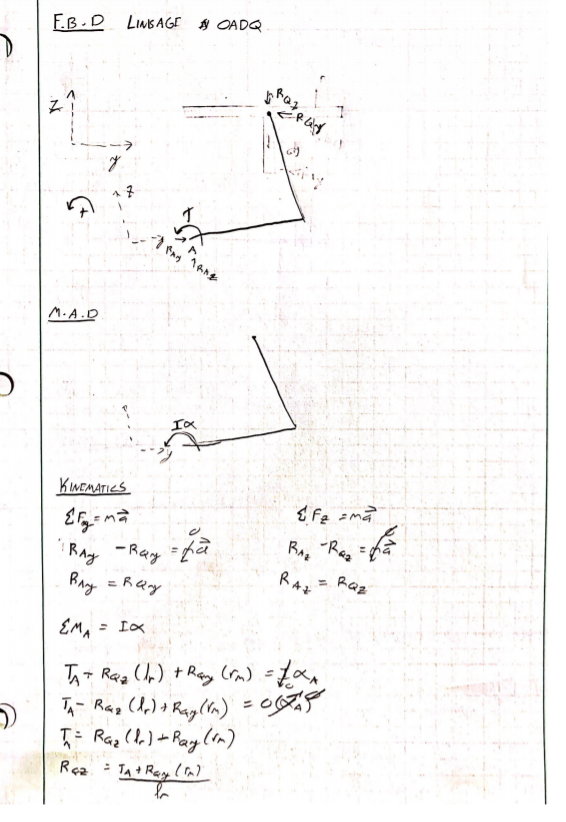 F.B.D LINKAGE OADQ
Z
y
R_Qz
R_Qy
z
+
T
y
R_Ay
A
R_Az
M.A.D
Iα
y
KINEMATICS
ΣF_y = ma⃗ ΣF_z = ma⃗
R_Ay - R_Qy = ma⃗ 0 R_Az - R_Qz = ma⃗ 0
R_Ay = R_Qy R_Az = R_Qz
ΣM_A = Iα
T_A - R_Qz (l_r) + R_Qy (r_m) = I α_A
T_A - R_Qz (l_r) + R_Qy (r_m) = 0 (α_A) 0
T_A = R_Qz (l_r) - R_Qy (r_m)
R_Qz = T_A + R_Qy (r_m)
l_r